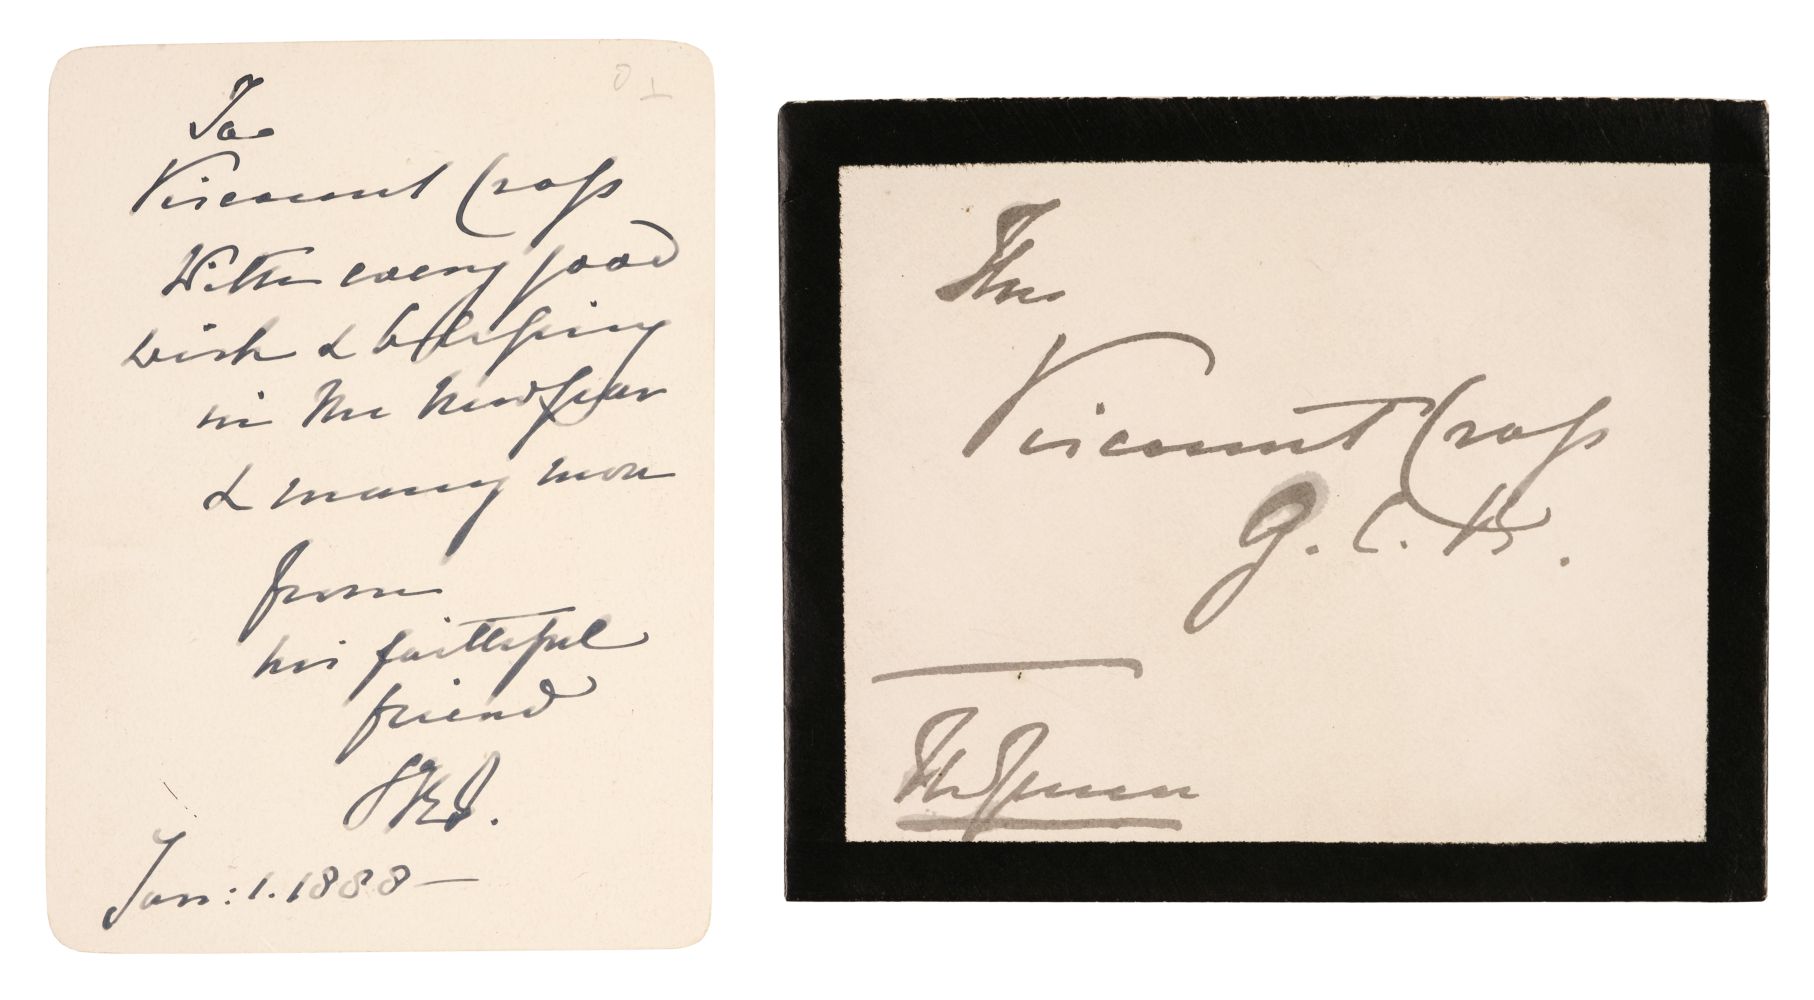 To
Viscount Cross
With every good
wish & blessing
in the New Year
& many more
from
his faithful
friend
VRI.
Jan: 1. 1888 —
The
Viscount Cross
G.C.B.
The Queen